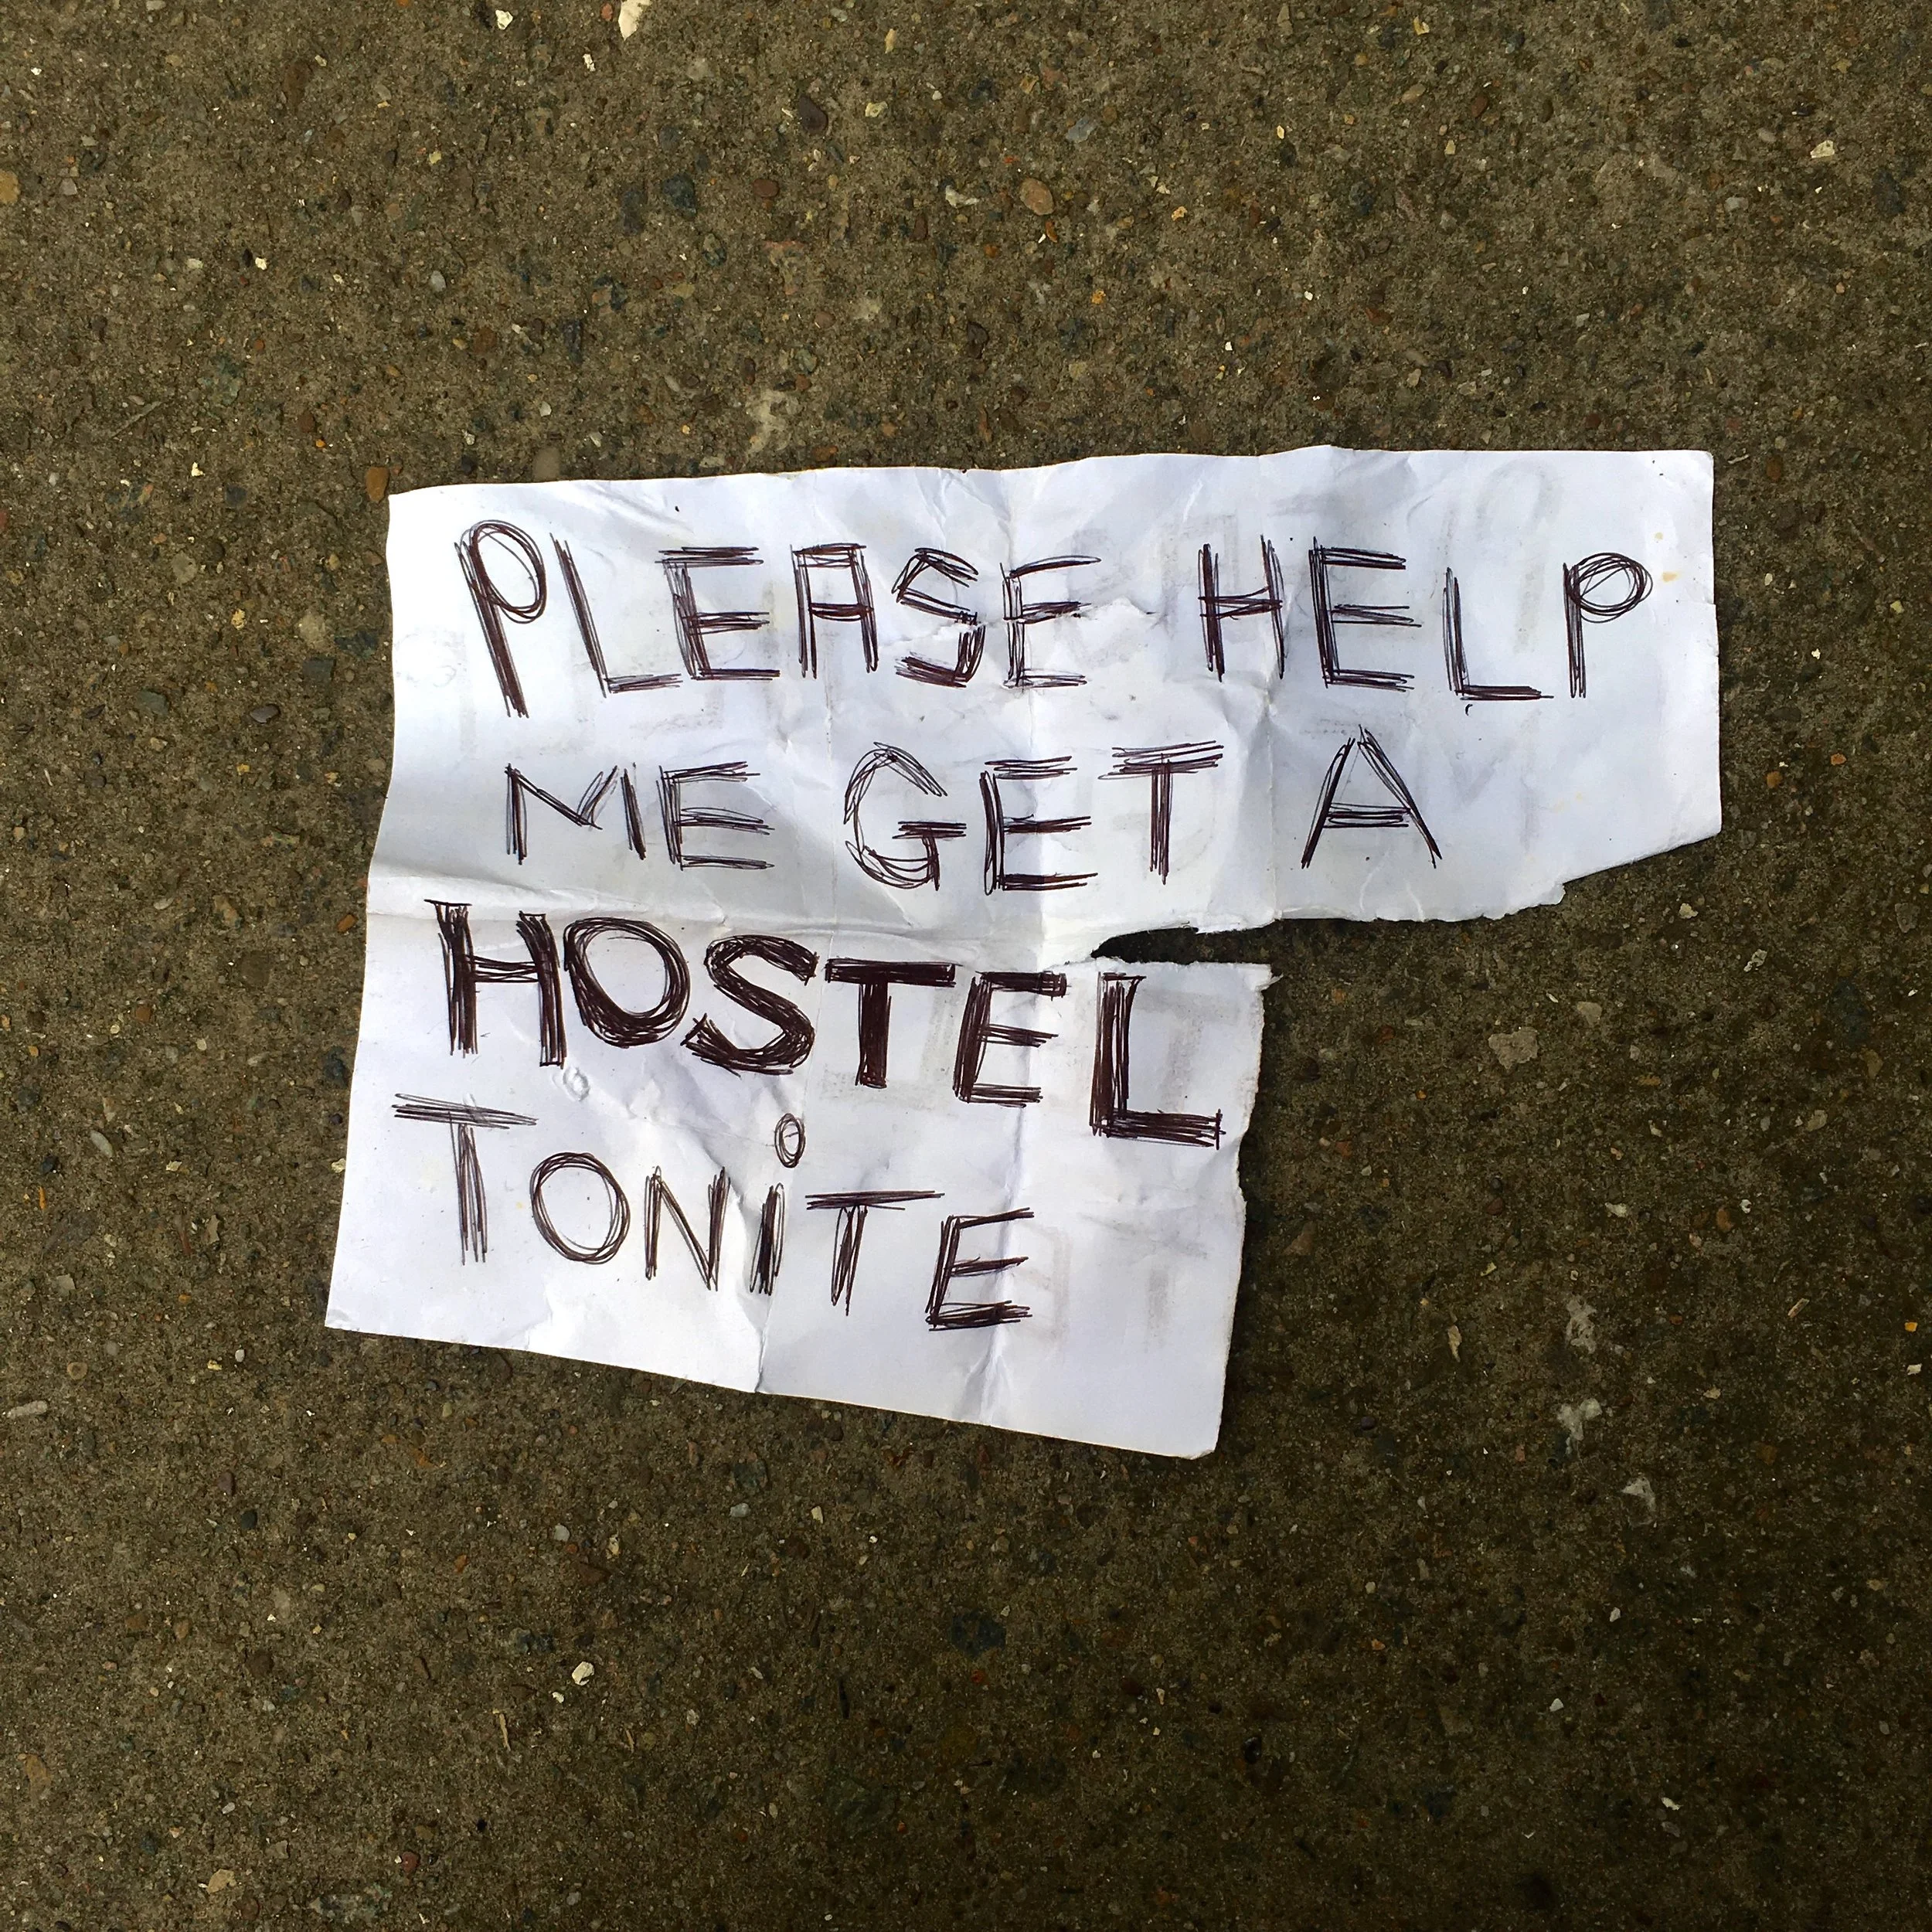 PLEASE HELP
ME GET A
HOSTEL
TONiTE